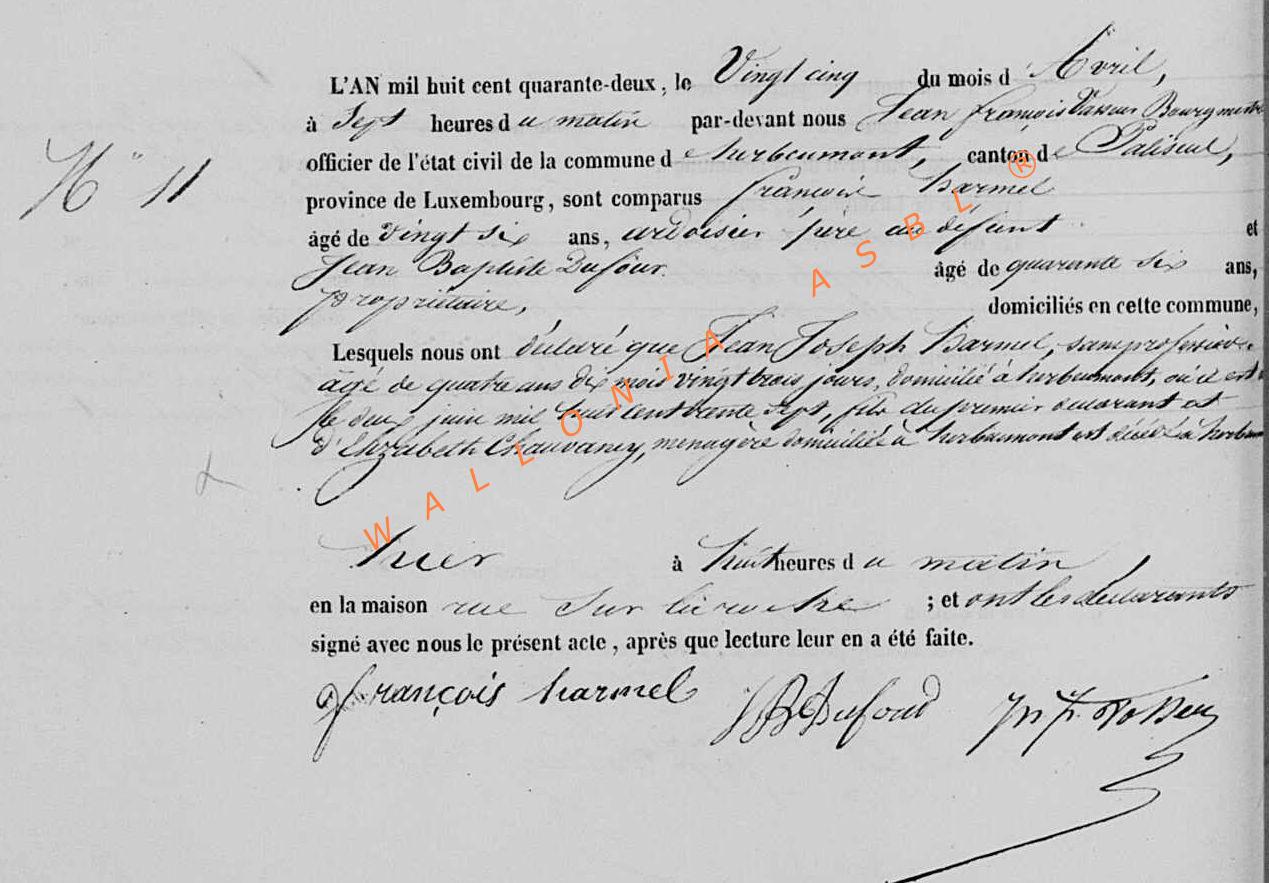 L'AN mil huit cent quarante-deux, le Vingt cinq du mois d'Avril,
à Sept heures du matin par-devant nous Jean françois Bourgmestre
officier de l'état civil de la commune d'herbeumont, canton de Paliseul,
N° 11
province de Luxembourg, sont comparus françois harmel
âgé de vingt six ans, ardoisier père du défunt et
Jean Baptiste Dufour âgé de quarante six ans,
propriétaire, domiciliés en cette commune,
Lesquels nous ont déclaré que Jean Joseph harmel, sans profession
âgé de quatre ans dix mois vingt trois jours, domicilié à herbeumont, où il est
le deux juin mil huit cent trente sept, fils du premier déclarant et
d'Elizabeth Chauvancy, menagère domiciliée à herbeumont est décédé à herbeu
hier à huit heures du matin
en la maison rue sur la roche ; et ont les déclarants
signé avec nous le présent acte, après que lecture leur en a été faite.
françois harmel JB Dufour
WALLONIA ASBL ®